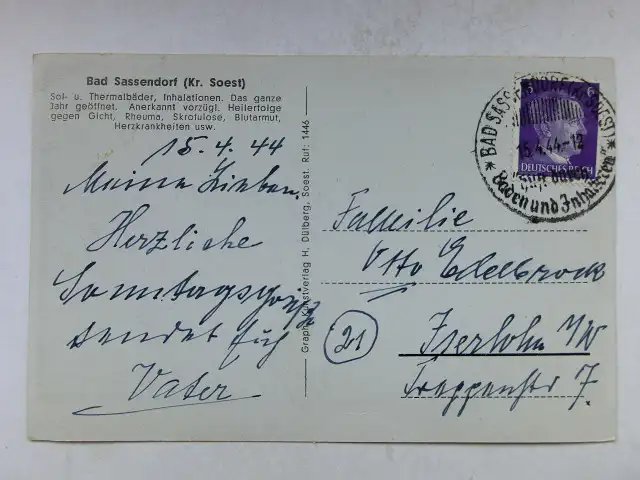 Bad Sassendorf (Kr. Soest)
Sol- u. Thermalbäder, Inhalationen. Das ganze
Jahr geöffnet. Anerkannt vorzügl. Heilerfolge
gegen Gicht, Rheuma, Skrofulose, Blutarmut,
Herzkrankheiten usw.
15. 4. 44
Meine Lieben.
Herzliche
Sonntagsgrüße
sendet Euch
Vater
Graph. Kunstverlag H. Dülberg, Soest. Ruf: 1446
6
DEUTSCHES REICH
* BAD SASSENDORF (KR. SOEST) *
15.4.44-12
Baden und Inhalieren
Familie
Otto Edelbrock
21
Iserlohn i/W
Trappenstr 7.